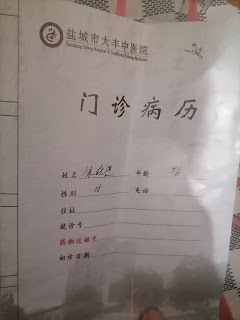 盐城市大丰中医院
Yancheng Dafeng Hospital of Traditional Chinese Medicine
门诊病历
姓名 年龄
性别 电话
住址
就诊号
药物过敏史
初诊日期